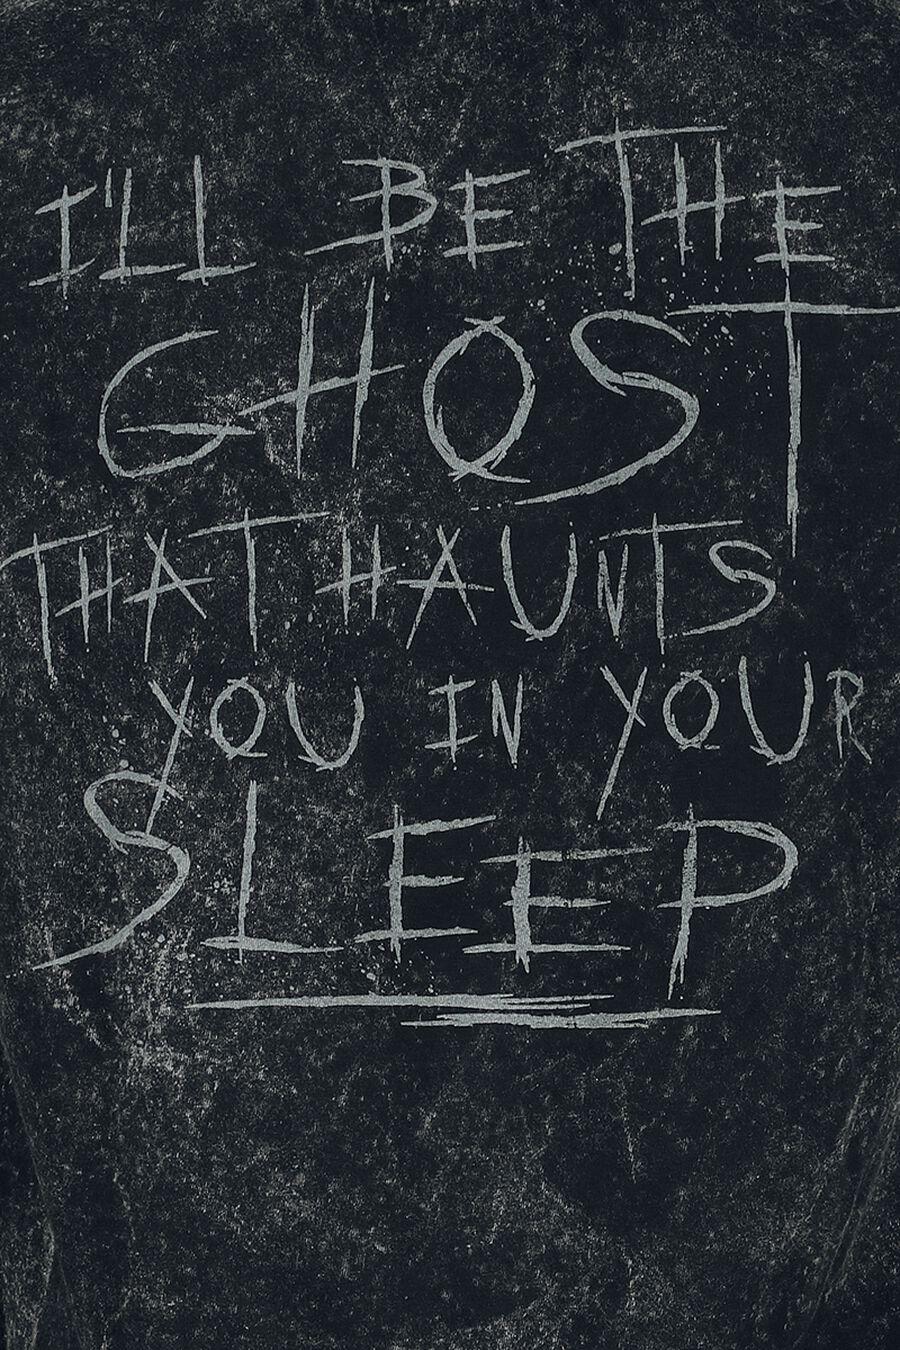 I'LL BE THE
GHOST
THAT HAUNTS
YOU IN YOUR
SLEEP